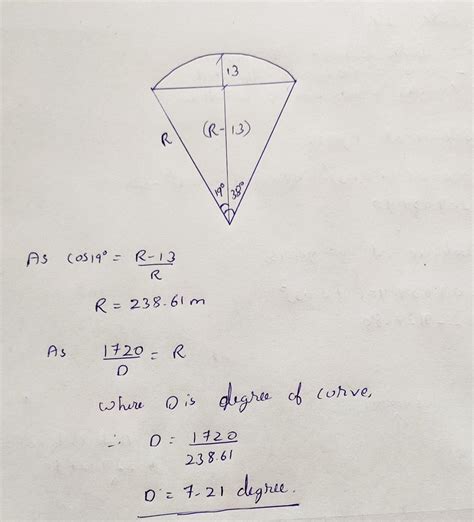 13
R
(R-13)
19° 38°
As cos19° = R-13
R
R = 238.61 m
As 1720 = R
D
where D is degree of curve,
∴ D = 1720
238.61
D = 7.21 degree.